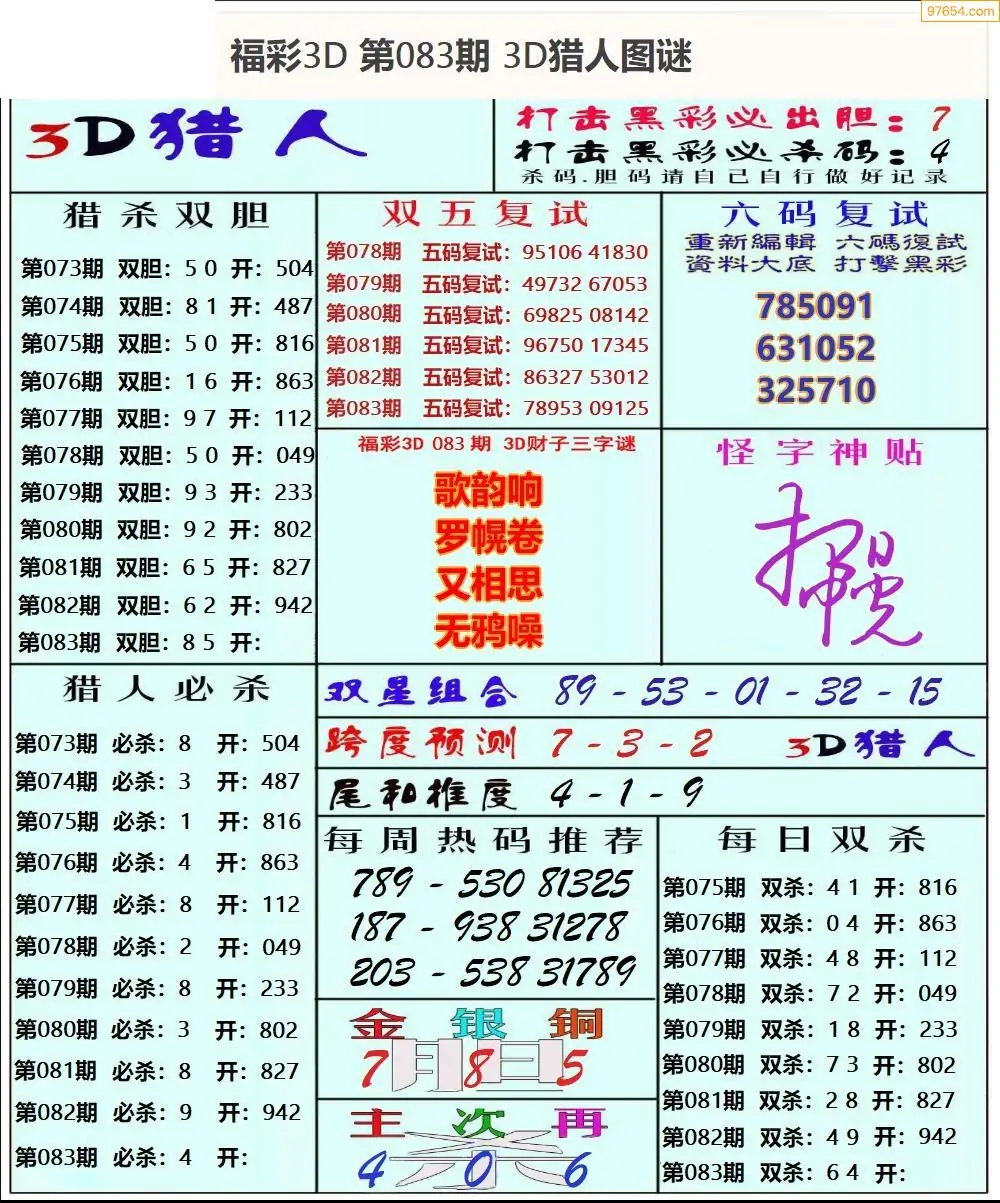 97654.com
福彩3D 第083期 3D猎人图谜
3D猎人
打击黑彩必出胆：7
打击黑彩必杀码：4
杀码.胆码请自己自行做好记录
猎杀双胆
第073期 双胆：5 0 开：504
第074期 双胆：8 1 开：487
第075期 双胆：5 0 开：816
第076期 双胆：1 6 开：863
第077期 双胆：9 7 开：112
第078期 双胆：5 0 开：049
第079期 双胆：9 3 开：233
第080期 双胆：9 2 开：802
第081期 双胆：6 5 开：827
第082期 双胆：6 2 开：942
第083期 双胆：8 5 开：
双五复试
第078期 五码复试：95106 41830
第079期 五码复试：49732 67053
第080期 五码复试：69825 08142
第081期 五码复试：96750 17345
第082期 五码复试：86327 53012
第083期 五码复试：78953 09125
六码复试
重新編輯 六碼復試
資料大底 打擊黑彩
785091
631052
325710
福彩3D 083 期 3D财子三字谜
歌韵响
罗幌卷
又相思
无鸦噪
怪字神贴
猎人必杀
第073期 必杀：8 开：504
第074期 必杀：3 开：487
第075期 必杀：1 开：816
第076期 必杀：4 开：863
第077期 必杀：8 开：112
第078期 必杀：2 开：049
第079期 必杀：8 开：233
第080期 必杀：3 开：802
第081期 必杀：8 开：827
第082期 必杀：9 开：942
第083期 必杀：4 开：
双星组合 89 - 53 - 01 - 32 - 15
跨度预测 7 - 3 - 2 3D猎人
尾和推度 4 - 1 - 9
每周热码推荐
789 - 530 81325
187 - 938 31278
203 - 538 31789
金 银 铜
月日
7 8 5
主 次 再
杀
4 0 6
每日双杀
第075期 双杀：4 1 开：816
第076期 双杀：0 4 开：863
第077期 双杀：4 8 开：112
第078期 双杀：7 2 开：049
第079期 双杀：1 8 开：233
第080期 双杀：7 3 开：802
第081期 双杀：2 8 开：827
第082期 双杀：4 9 开：942
第083期 双杀：6 4 开：